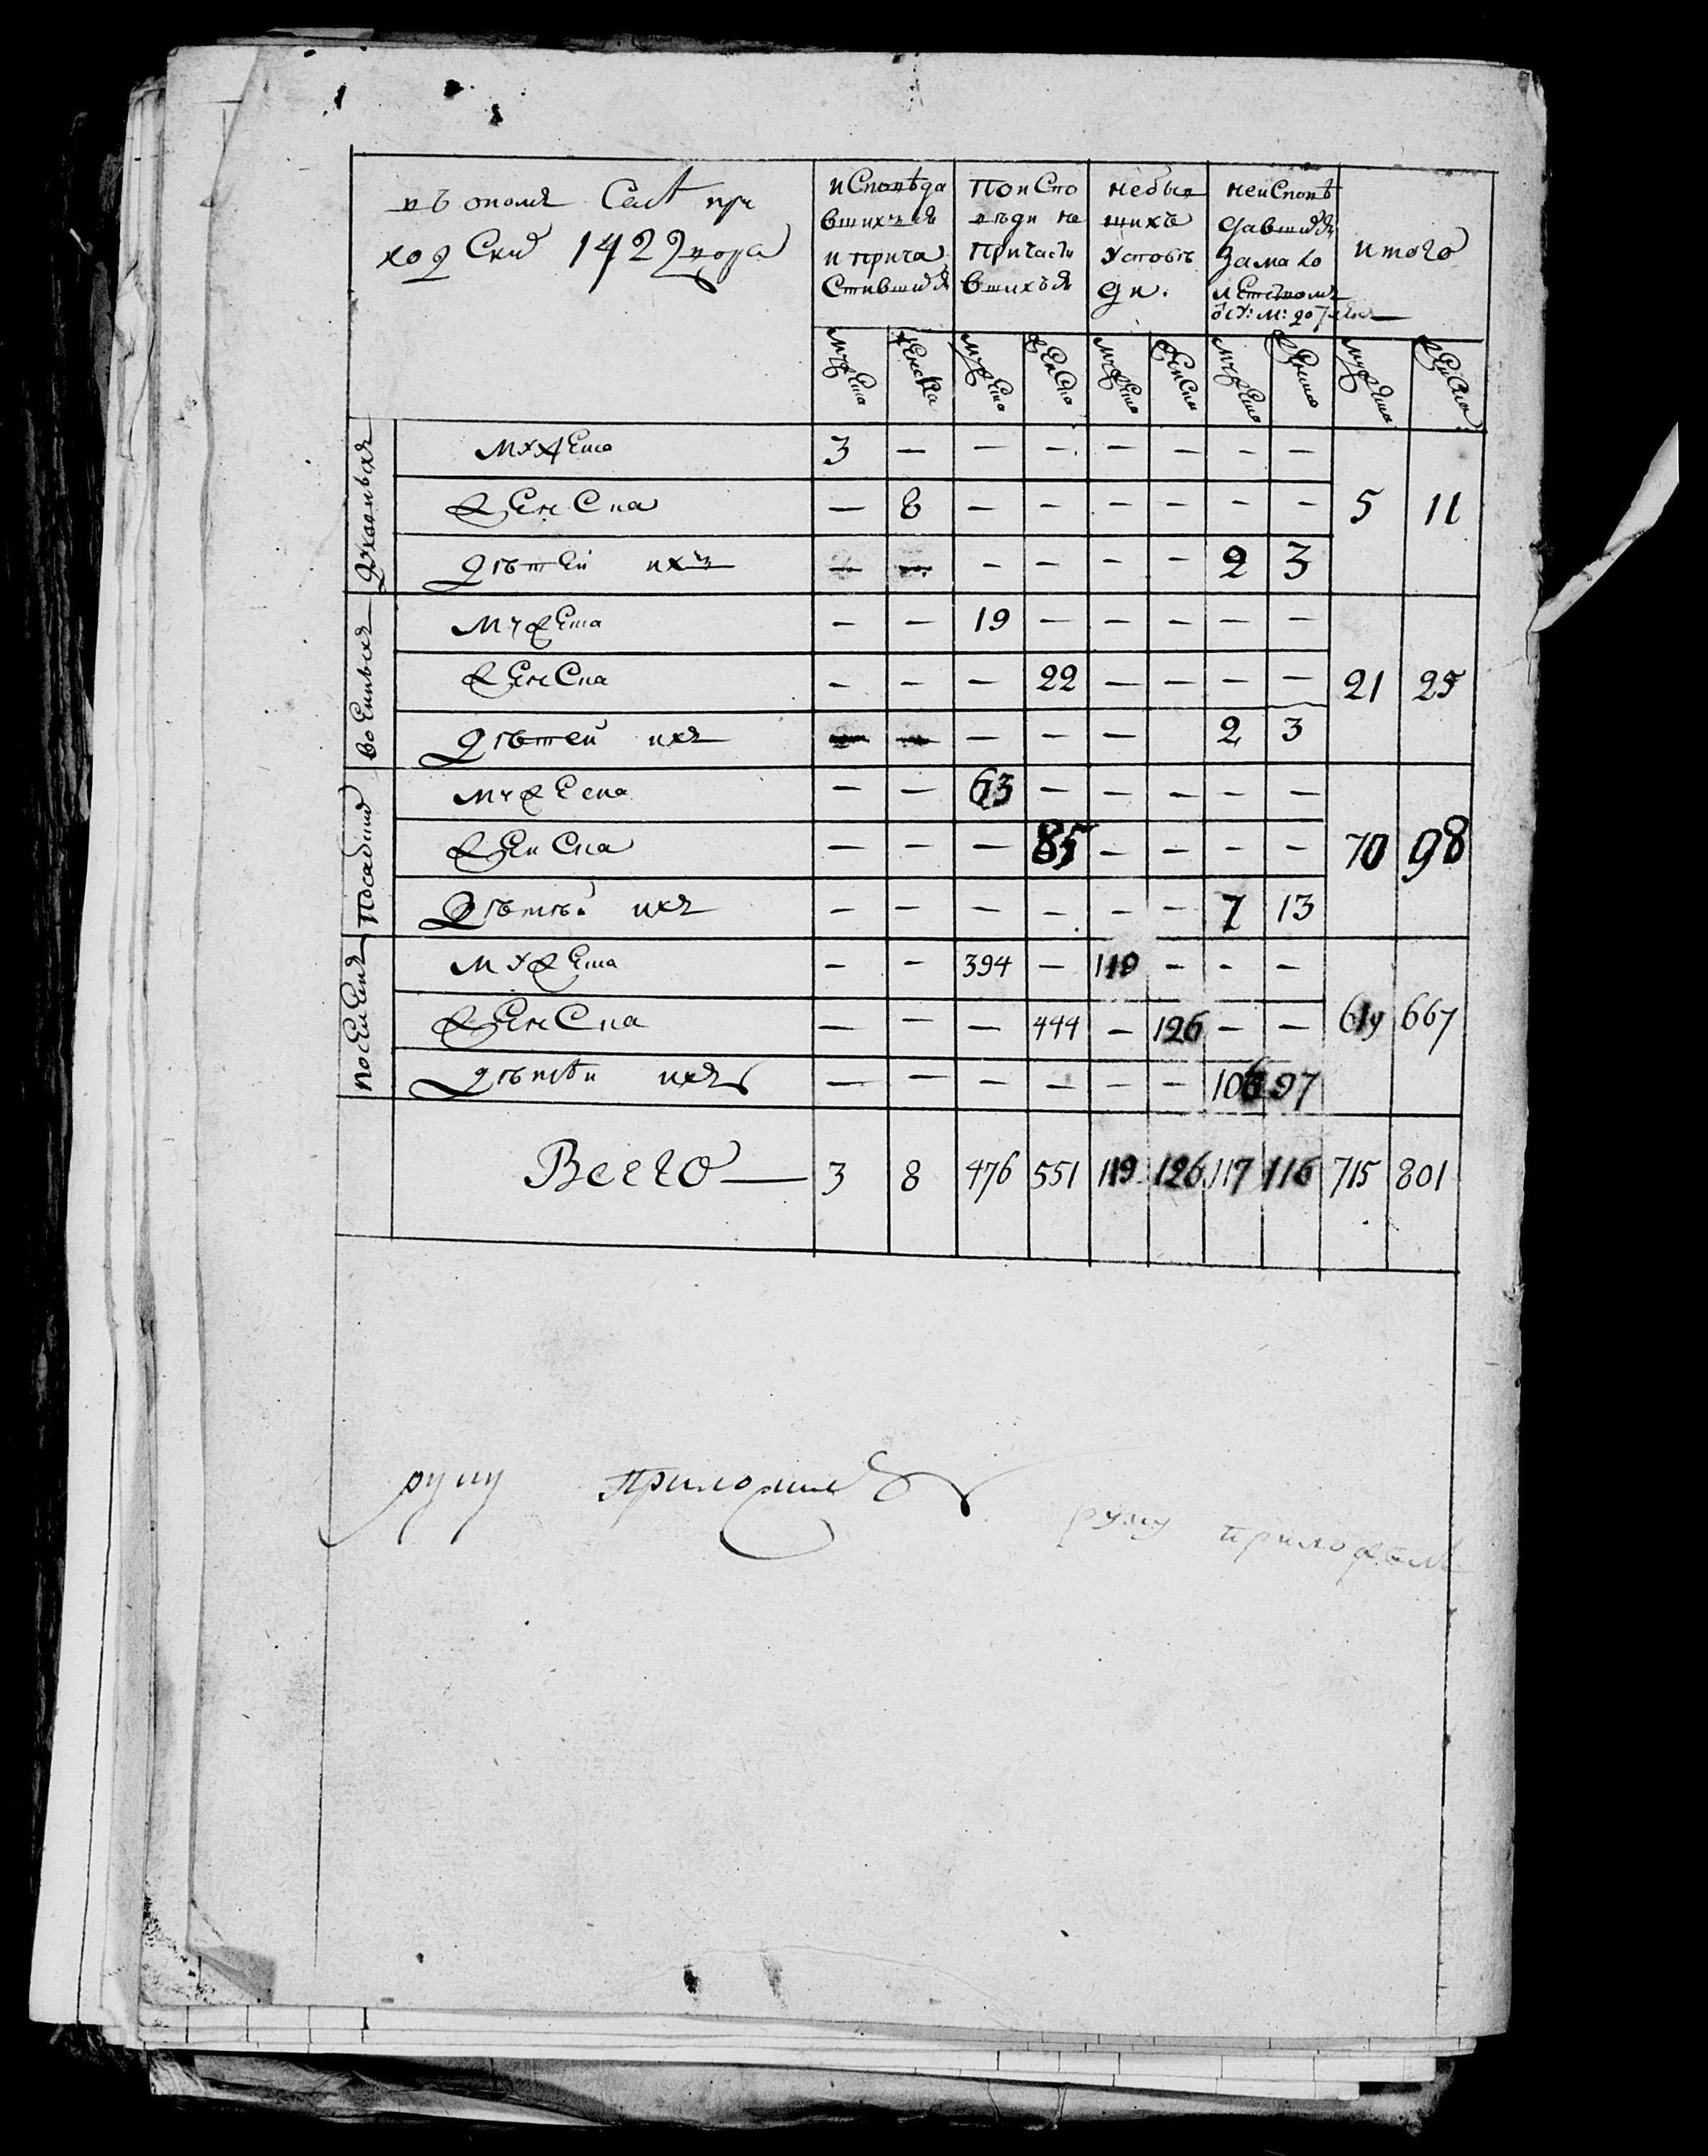 въ ономъ Сел при
ходСкий 1422 двора
иСповѣда
вшихъся
и прича
Стившихся
По иСпо
вѣди не
Причасти
вшихъся
небыв
шихъ
У исповѣ
ди.
неиСповѣ
давшихся
за мало
лЕтствомъ
итого
мужЕска женСка мужЕска женСка мужЕска женСка мужЕска женСка мужЕска женСка
Духовныхъ
мужЕска 3 — — — — — — —
женСка — 8 — — — — — — 5 11
дѣтей ихъ — — — — — — 2 3
воЕнныхъ
мужЕска — — 19 — — — — —
женСка — — — 22 — — — — 21 25
дѣтей ихъ — — — — — 2 3
Посадский
мужЕска — — 63 — — — — —
женСка — — — 85 — — — — 70 98
дѣтѣй ихъ — — — — — — 7 13
посЕлЕнъ
мужЕска — — 394 — 119 — — —
женСка — — — 444 — 126 — — 619 667
дѣтѣи ихъ — — — — — — 106 97
Всего — 3 8 476 551 119 126 117 116 715 801
руку приложилъ
руку приложилъ